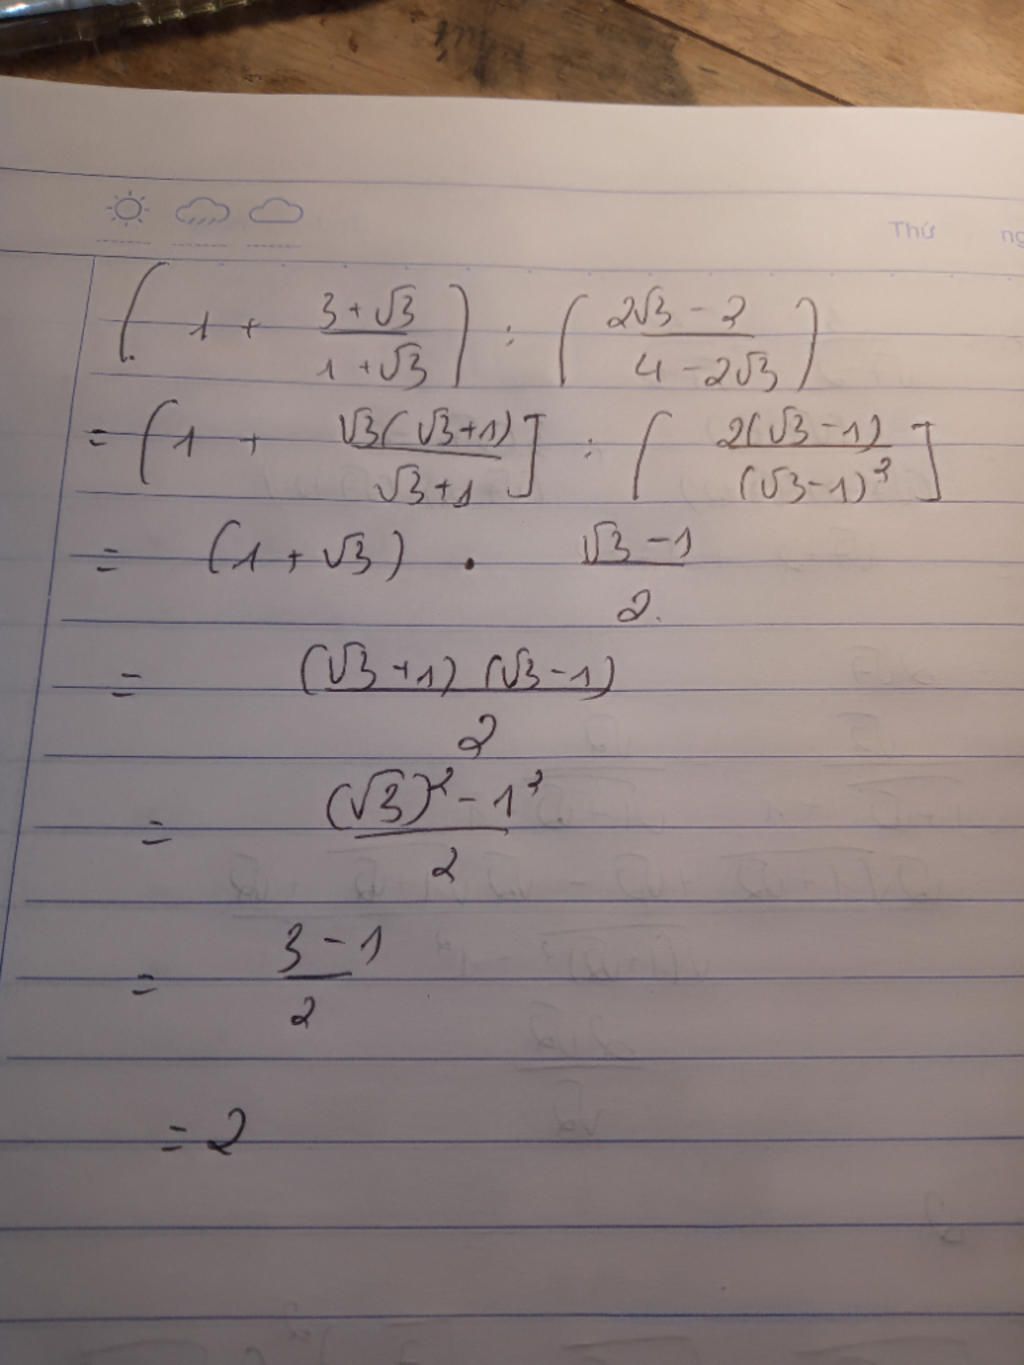 Thứ ng
( 1 + (3 + √3)/(1 + √3) ) : ( (2√3 - 2)/(4 - 2√3) )
= ( 1 + √3(√3+1)/(√3+1) ] : [ 2(√3-1)/(√3-1)² ]
= (1 + √3) . (√3-1)/2.
= (√3+1) (√3-1)/2
= ((√3)² - 1²)/2
= (3-1)/2
= 2